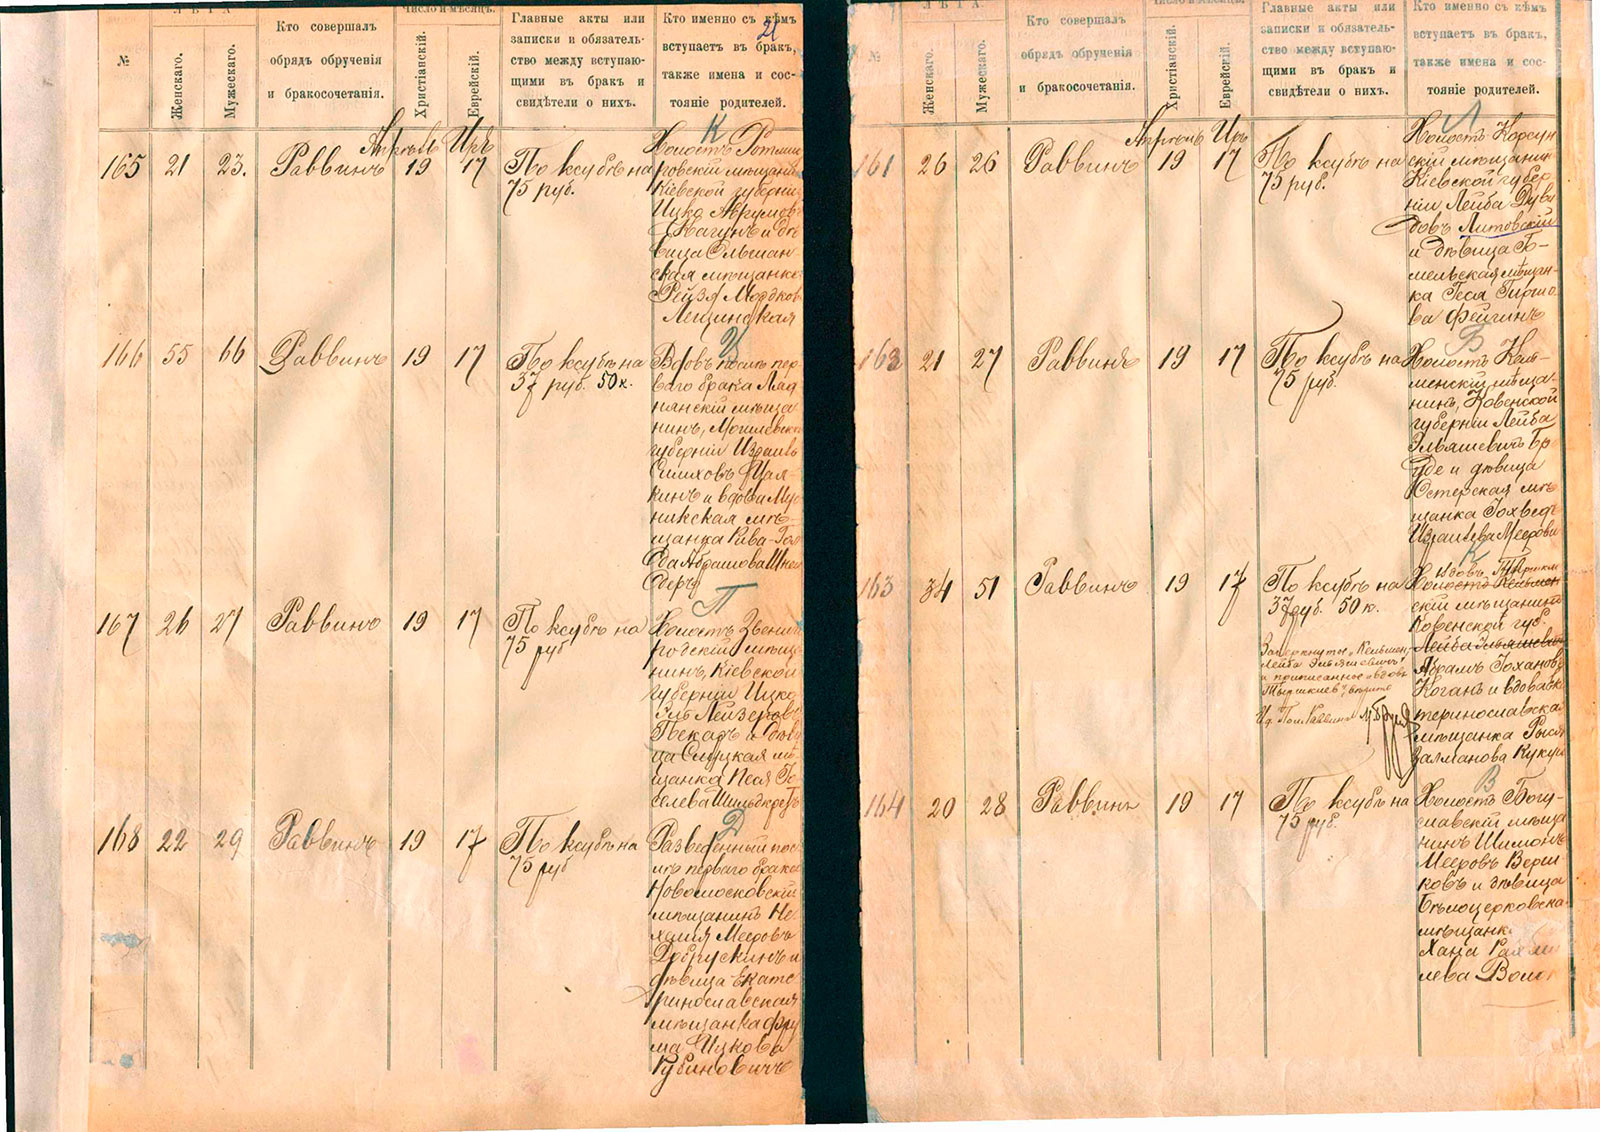 21
ЛѢТА
№
Женскаго.
Мужескаго.
Кто совершалъ
обрядъ обрученія
и бракосочетанія.
Число и мѣсяцъ.
Христіанскій.
Еврейскій.
Главные акты или
записки и обязатель-
ство между вступаю-
щими въ бракъ и
свидѣтели о нихъ.
Кто именно съ кѣмъ
вступаетъ въ бракъ,
также имена и сос-
тояніе родителей.
Апрель Иръ
К
165 21 23. Раввинъ 19 17
По ксубѣ на
75 руб.
Холостъ
мѣщанинъ
Кіевской губерніи
Ицко Аврумовъ
Каганъ и дѣ
вица Ольшан-
ская мѣщанка
Рейзя Мордков
Лещинская
Ц
166 55 66 Раввинъ 19 17
По ксубѣ на
37 руб. 50 к.
Вдовъ после пер-
ваго брака Ляд
нянскій мѣща
нинъ, Могилевской
губерніи Израиль
Симховъ Цал
кинъ и вдова
никская мѣ-
щанка Рива-Гол
да Абрамова Шней
деръ
П
167 26 27 Раввинъ 19 17
По ксубѣ на
75 руб
Холостъ Звениго
родскій мѣща
нинъ, Кіевской
губерніи Ицко
Эль Лейзеровъ
Пекаръ и дѣви
ца Слуцкая мѣ
щанка Песя Іо
селева
Д
168 22 29 Раввинъ 19 17
По ксубѣ на
75 руб
Разведенный пос
лѣ перваго брака
Новомосковскій
мѣщанинъ Не
хемія Мееровъ
Добрускинъ и
дѣвица Екате
ринославская
мѣщанка Фру
ма Ицкова
Рубиновичъ
ЛѢТА
№
Женскаго.
Мужескаго.
Кто совершалъ
обрядъ обрученія
и бракосочетанія.
Число и мѣсяцъ.
Христіанскій.
Еврейскій.
Главные акты или
записки и обязатель-
ство между вступаю-
щими въ бракъ и
свидѣтели о нихъ.
Кто именно съ кѣмъ
вступаетъ въ бракъ,
также имена и сос-
тояніе родителей.
Апрель Иръ
Л
161 26 26 Раввинъ 19 17
По ксубѣ на
75 руб.
Холостъ Корсун
скій мѣщанинъ
Кіевской губер
ніи Лейба Дуви
довъ Литовскій
и дѣвица Го-
мельская мѣщан-
ка Геся Гиршо
ва Фейгинъ
Б
21 27 Раввинъ 19 17
По ксубѣ на
75 руб.
Холостъ Кель-
менскій мѣща-
нинъ, Ковенской
губерніи Лейба
Эльяшевичъ Бр
уде и дѣвица
Остерская мѣ
щанка Іохведъ
Израилева Меерови
К
163 34 51 Раввинъ 19 17
По ксубѣ на
37 руб. 50 к.
Зачеркнуты „Кельмен,
Лейба Эльяшевичъ"
и приписанное „вдовъ
Тыршклев" вѣрите
И. д. Пом. Раввина
Вдовъ
Холостъ Кельмен
скій мѣщанинъ
Ковенской губ.
Лейба Эльяшевичъ
Абрамъ Іохановъ
Коганъ и вдова Ека
теринославская
мѣщанка Рыся
Залманова
В
164 20 28 Раввинъ 19 17
По ксубѣ на
75 руб.
Холостъ Богу-
славскій мѣща
нинъ Шимонъ
Мееровъ Верш
ковъ и дѣвица
Бѣлоцерковская
мѣщанка
Хана Рахми
лева